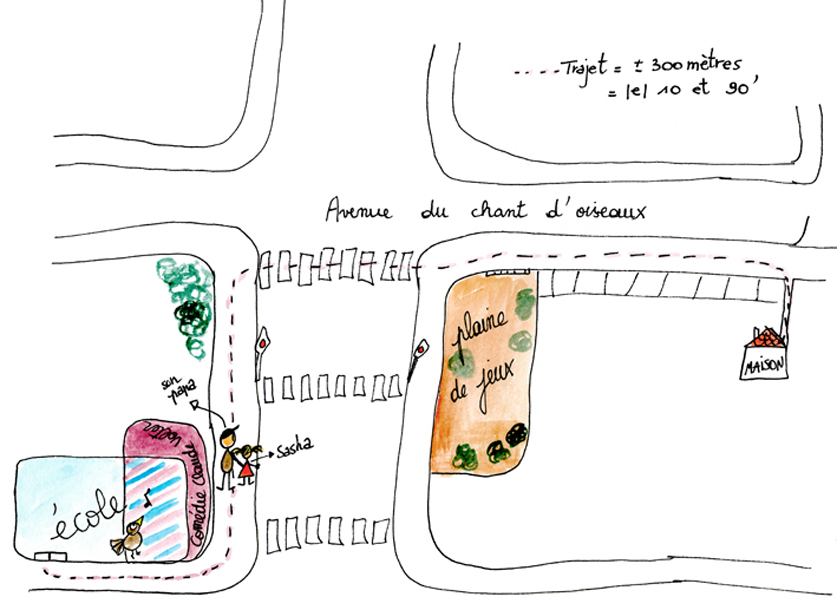 Trajet = ± 300 mètres
= |e| 10 et 90'
Avenue du chant d'oiseaux
plaine
de jeux
MAISON
son
papa
Sasha
école
Comédie Claude
Volter